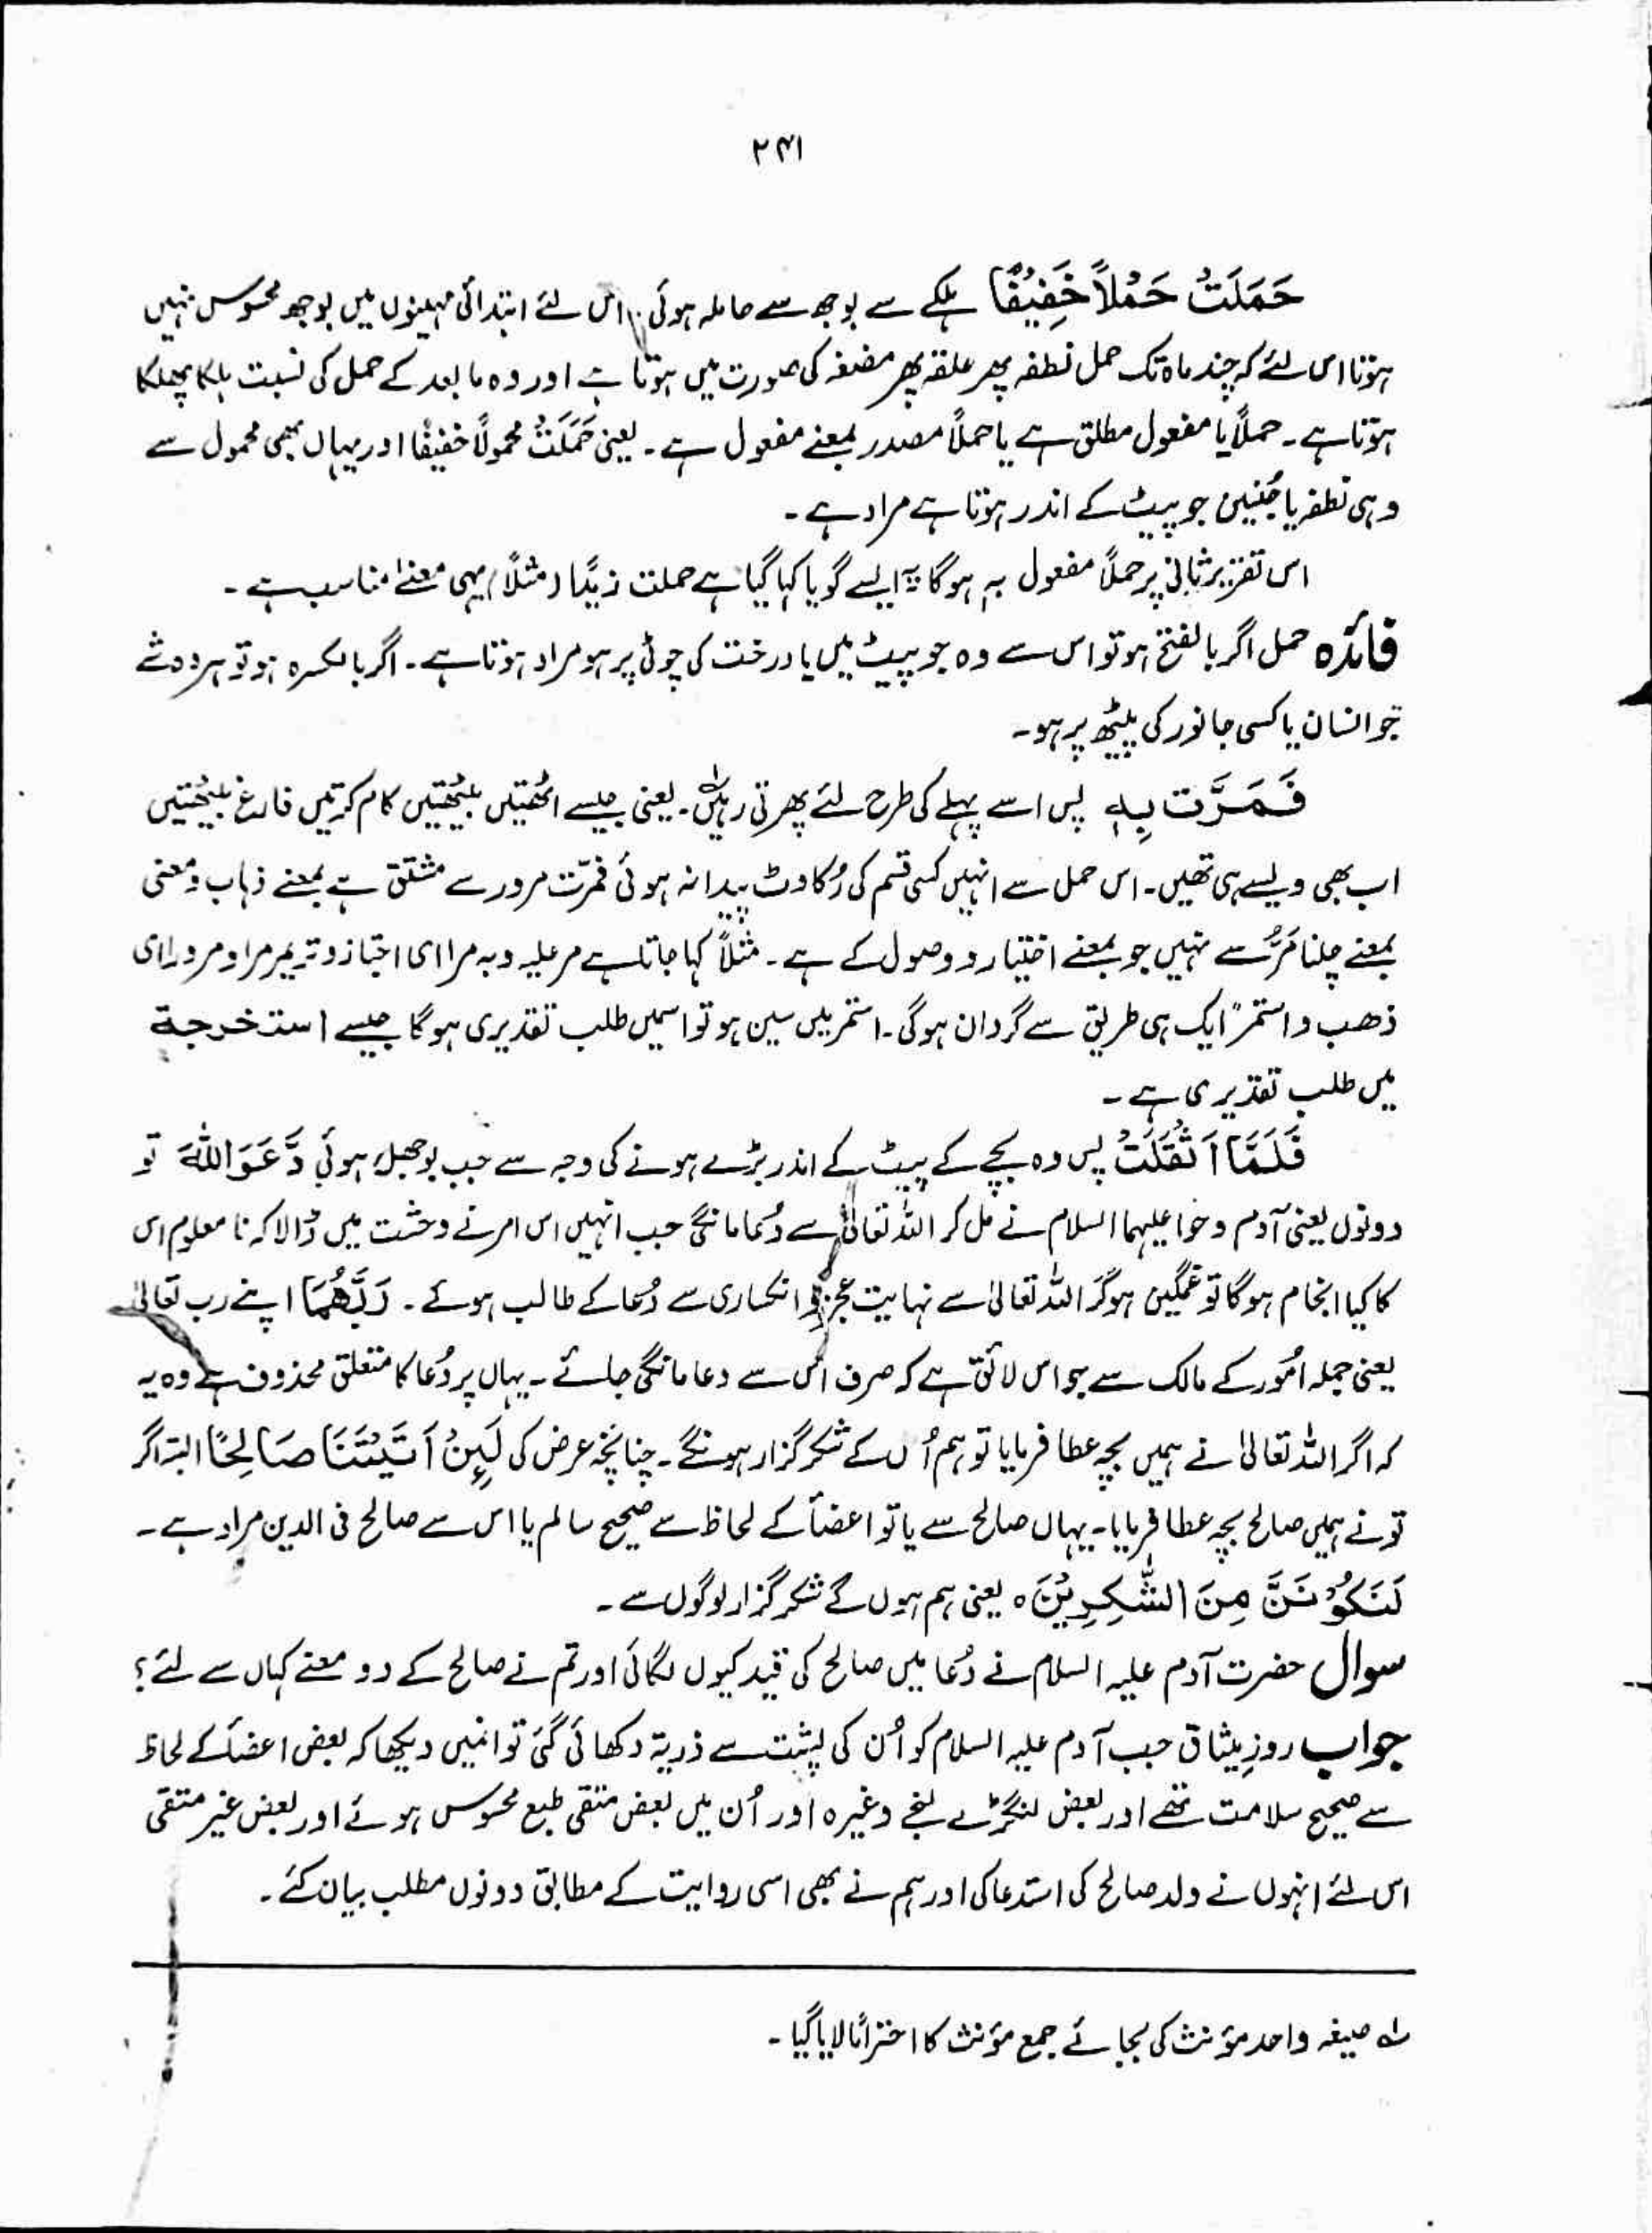 ۲۴۱
حَمَلَتْ حَمْلاً خَفِيْفًا ہلکے سے بوجھ سے حاملہ ہوئی۔ اس لئے ابتدائی مہینوں میں بوجھ محسوس نہیں
ہوتا اس لئے کہ چند ماہ تک حمل نطفہ پھر علقہ پھر مضغہ کی صورت میں ہوتا ہے اور وہ مابعد کے حمل کی نسبت ہلکا پھلکا
ہوتا ہے۔ حملاً یا مفعول مطلق ہے یا حملاً مصدر بمعنے مفعول ہے۔ یعنی حَمَلَتْ محمولاً خفیفًا اور یہاں بھی محمول سے
وہی نطفہ یا جَنین جو پیٹ کے اندر ہوتا ہے مراد ہے۔
اس تقریر ثانی پر حملاً مفعول بہ ہوگا یہ ایسے گویا کہا گیا ہے حملت زیدًا (مثلاً) یہی معنےٰ مناسب ہے۔
فائدہ حمل اگر بالفتح ہو تو اس سے وہ جو پیٹ میں یا درخت کی چوٹی پر ہو مراد ہوتا ہے۔ اگر بالکسرہ ہو تو ہر وہ شے
جو انسان یا کسی جانور کی پیٹھ پر ہو۔
فَمَرَّت بِہٖ پس اسے پہلے کی طرح لئے پھرتی رہیں۔ یعنی جیسے اٹھتیں بیٹھتیں کام کرتیں فارغ بیٹھتیں
اب بھی ویسے ہی تھیں۔ اس حمل سے انہیں کسی قسم کی رُکاوٹ پیدا نہ ہوئی فمرّت مرور سے مشتق ہے بمعنے ذہاب و معنی
بمعنے چلنا مَرُّ سے نہیں جو بمعنے اختیار و وصول کے ہے۔ مثلاً کہا جاتا ہے مر علیہ و بہ مرا ای اجتاز و تریمر مرا و مرورا ای
ذھب و استمر ایک ہی طریق سے گردان ہوگی۔ استمر میں سین ہو تو اسمیں طلب تقدیری ہوگا جیسے استخرجۃ
میں طلب تقدیری ہے۔
فَلَمَّا اَثْقَلَتْ پس وہ بچے کے پیٹ کے اندر بڑے ہونے کی وجہ سے جب بوجھل ہوئی دَّعَوَا اللّٰہَ تو
دونوں یعنی آدم و حوا علیہما السلام نے مل کر اللہ تعالیٰ سے دُعا مانگی جب انہیں اس امر نے وحشت میں ڈالا کہ نامعلوم اس
کا کیا انجام ہوگا تو غمگین ہوگر اللہ تعالیٰ سے نہایت عجز و انکساری سے دُعا کے طالب ہوئے۔ رَبَّھُمَا اپنے رب تعالیٰ
یعنی جملہ امُور کے مالک سے جو اس لائق ہے کہ صرف اس سے دعا مانگی جائے۔ یہاں پر دُعا کا متعلق محذوف ہے وہ یہ
کہ اگر اللہ تعالیٰ نے ہمیں بچہ عطا فرمایا تو ہم اُس کے شکر گزار ہونگے۔ چنانچہ عرض کی لَئِنْ اٰتَیْتَنَا صَالِحًا البتہ اگر
تو نے ہمیں صالح بچہ عطا فرمایا۔ یہاں صالح سے یا تو اعضأ کے لحاظ سے صحیح سالم یا اس سے صالح فی الدین مراد ہے۔
لَنَکُوْنَنَّ مِنَ الشّٰکِرِیْنَ ہ یعنی ہم ہوں گے شکر گزار لوگوں سے۔
سوال حضرت آدم علیہ السلام نے دُعا میں صالح کی قید کیوں لگائی اور تم نے صالح کے دو معنے کہاں سے لئے؟
جواب روزِ میثاق جب آدم علیہ السلام کو اُن کی پشت سے ذریۃ دکھائی گئی تو انہیں دیکھا کہ بعض اعضأ کے لحاظ
سے صحیح سلامت تھے اور بعض لنگڑے لنجے وغیرہ اور اُن میں بعض متقی طبع محسوس ہوئے اور بعض غیر متقی
اس لئے انہوں نے ولد صالح کی استدعا کی اور ہم نے بھی اسی روایت کے مطابق دونوں مطلب بیان کئے۔
لہ صیغہ واحد مؤنث کی بجائے جمع مؤنث کا احترامًا لایا گیا۔